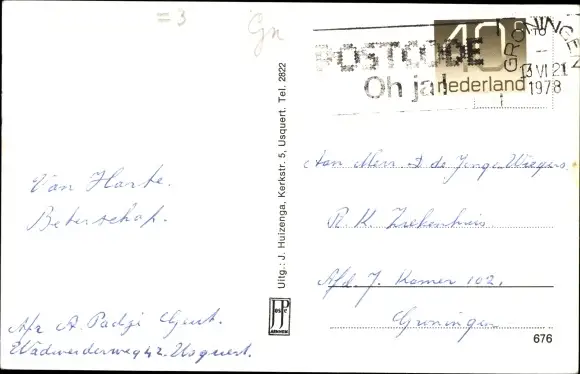 = 3
Gn
POSTCODE
Oh ja!
40
nederland
GRONINGEN
13 VI 21
1978
Van Harte.
Beterschap.
Afz A. Padzi Gent.
Wadwerderweg 42. Usquert.
Uitg.: J. Huizenga, Kerkstr. 5, Usquert, Tel. 2822
Aan Mevr de Jonge Wiegers.
R. K. Ziekenhuis
Afd. J. Kamer 102.
Groningen
676